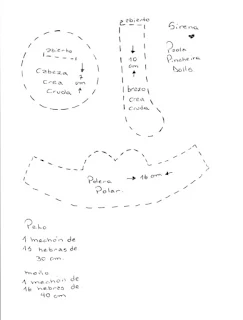 abierto
cabeza
crea
cruda
7
cm
abierto
10
cm
brazo
crea
cruda
Sirena
Paola
Pinaheira
Bolle
Polera
Polar.
16 cm
Pelo
1 mechón de
15 hebras de
30 cm.
moño
1 mechón de
16 hebras de
40 cm